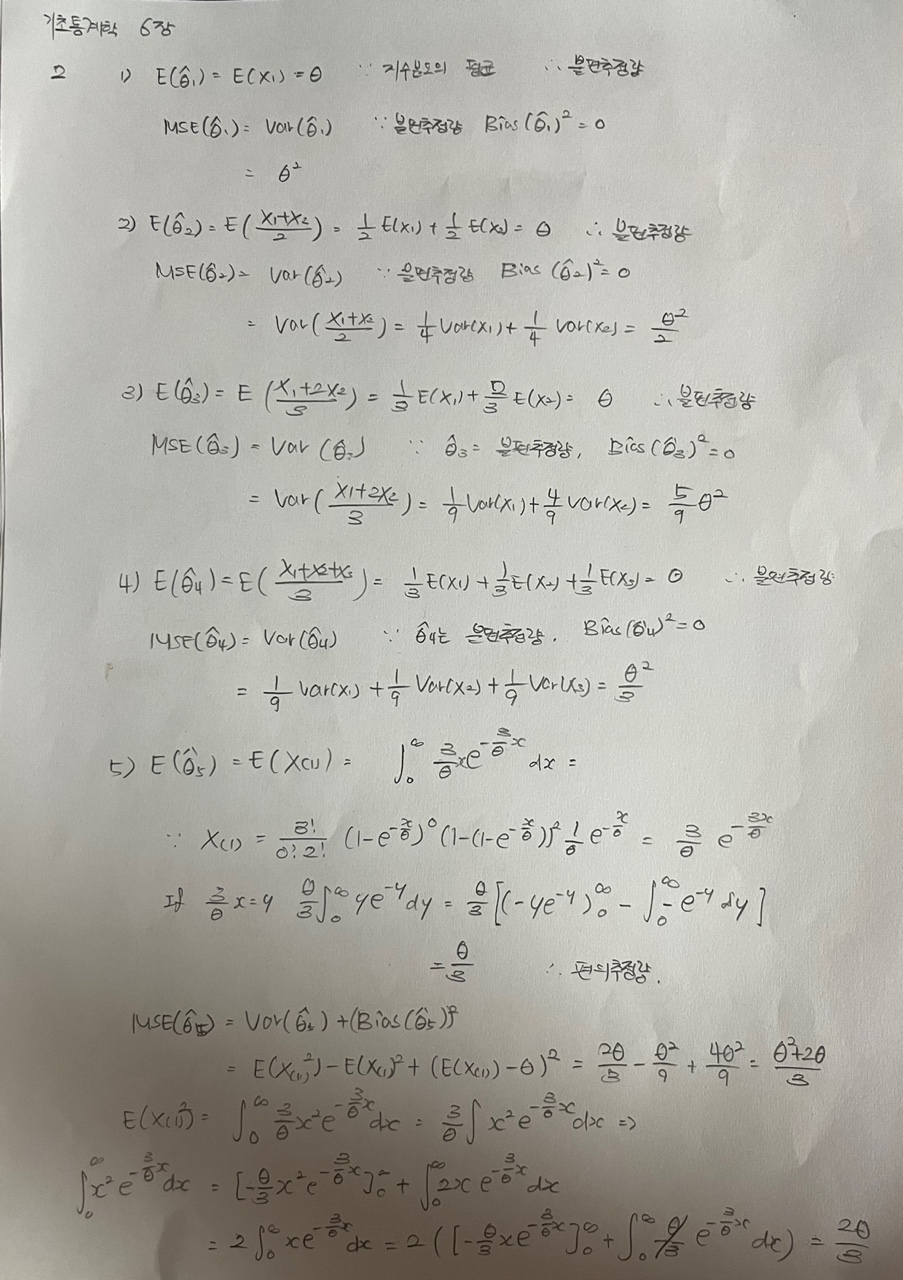 기초통계학 6장
2 1) E(θ̂₁) = E(X₁) = θ ∵ 지수분포의 평균 ∴ 불편추정량
MSE(θ̂₁) = Var(θ̂₁) ∵ 불편추정량 Bias(θ̂₁)² = 0
= θ²
2) E(θ̂₂) = E((X₁+X₂)/2) = 1/2 E(X₁) + 1/2 E(X₂) = θ ∴ 불편추정량
MSE(θ̂₂) = Var(θ̂₂) ∵ 불편추정량 Bias(θ̂₂)² = 0
= Var((X₁+X₂)/2) = 1/4 Var(X₁) + 1/4 Var(X₂) = θ²/2
3) E(θ̂₃) = E((X₁+2X₂)/3) = 1/3 E(X₁) + 2/3 E(X₂) = θ ∴ 불편추정량
MSE(θ̂₃) = Var(θ̂₃) ∵ θ̂₃ = 불편추정량, Bias(θ̂₃)² = 0
= Var((X₁+2X₂)/3) = 1/9 Var(X₁) + 4/9 Var(X₂) = 5/9 θ²
4) E(θ̂₄) = E((X₁+X₂+X₃)/3) = 1/3 E(X₁) + 1/3 E(X₂) + 1/3 E(X₃) = θ ∴ 불편추정량
MSE(θ̂₄) = Var(θ̂₄) ∵ θ̂₄는 불편추정량. Bias(θ̂₄)² = 0
= 1/9 Var(X₁) + 1/9 Var(X₂) + 1/9 Var(X₃) = θ²/3
5) E(θ̂₅) = E(X₍₁₎) = ∫₀^∞ 3/θ x e^(-3/θ x) dx =
∵ X₍₁₎ = 3!/(0! 2!) (1-e^(-x/θ))⁰ (1-(1-e^(-x/θ)))² 1/θ e^(-x/θ) = 3/θ e^(-3x/θ)
If 3/θ x = y θ/3 ∫₀^∞ y e^(-y) dy = θ/3 [(-y e^(-y))₀^∞ - ∫₀^∞ -e^(-y) dy]
= θ/3 ∴ 편의추정량.
MSE(θ̂₅) = Var(θ̂₅) + (Bias(θ̂₅))²
= E(X₍₁₎²) - E(X₍₁₎)² + (E(X₍₁₎) - θ)² = 2θ/3 - θ²/9 + 4θ²/9 = (θ²+2θ)/3
E(X₍₁₎²) = ∫₀^∞ 3/θ x² e^(-3/θ x) dx = 3/θ ∫ x² e^(-3/θ x) dx =>
∫₀^∞ x² e^(-3/θ x) dx = [-θ/3 x² e^(-3/θ x)]₀^∞ + ∫₀^∞ 2x e^(-3/θ x) dx
= 2 ∫₀^∞ x e^(-3/θ x) dx = 2([-θ/3 x e^(-3/θ x)]₀^∞ + ∫₀^∞ θ/3 e^(-3/θ x) dx) = 2θ/3